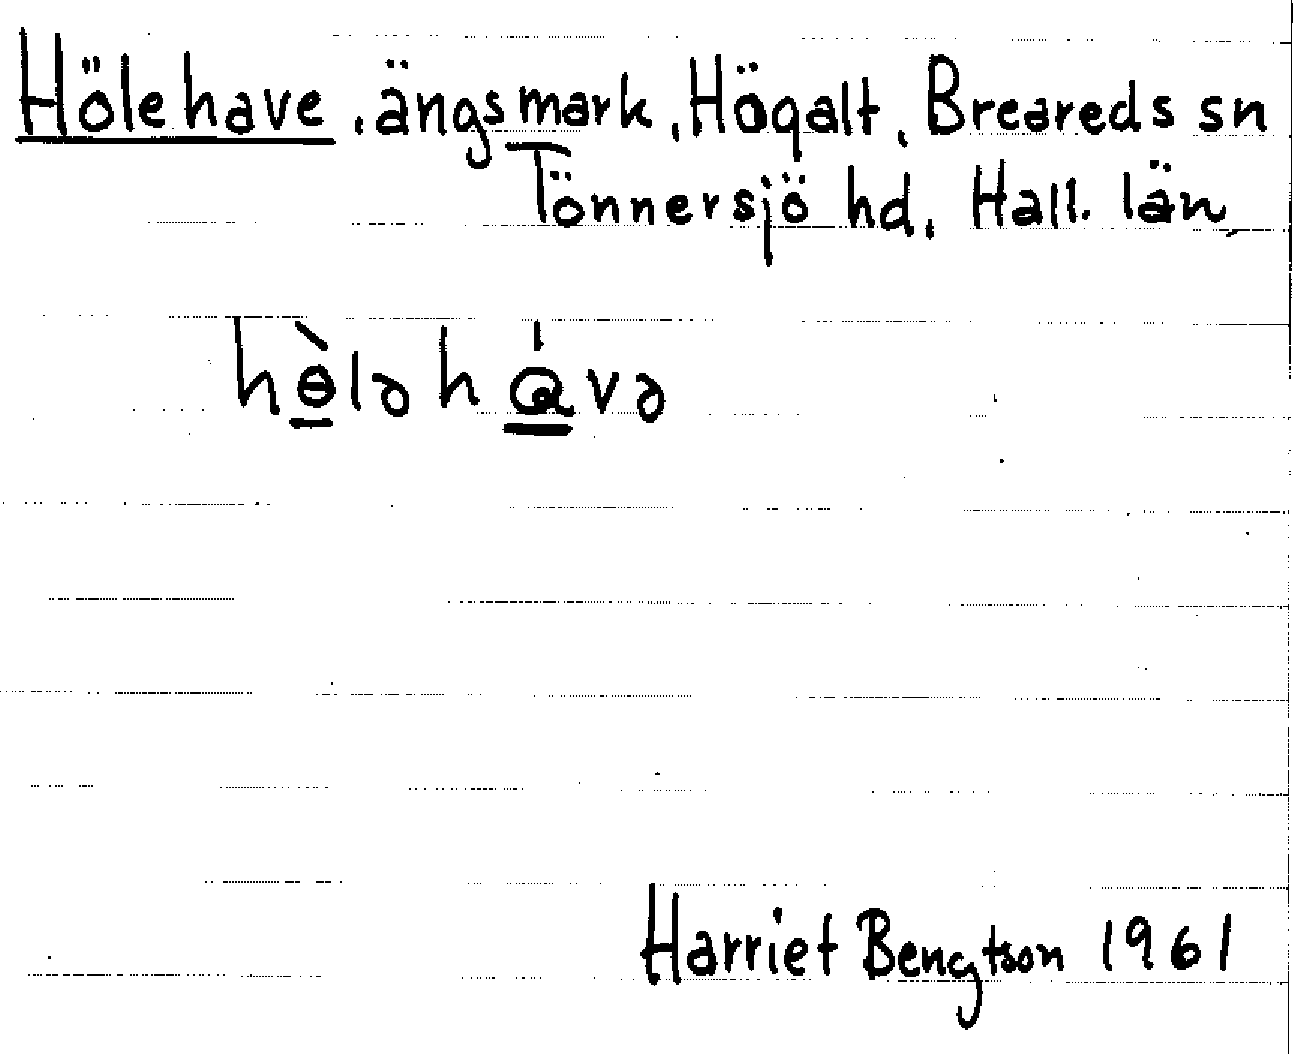 Hölehave, ängsmark, Högalt, Breareds sn
Tönnersjö hd, Hall. län
hɵ̠̀ləhɑ̠́və
Harriet Bengtson 1961